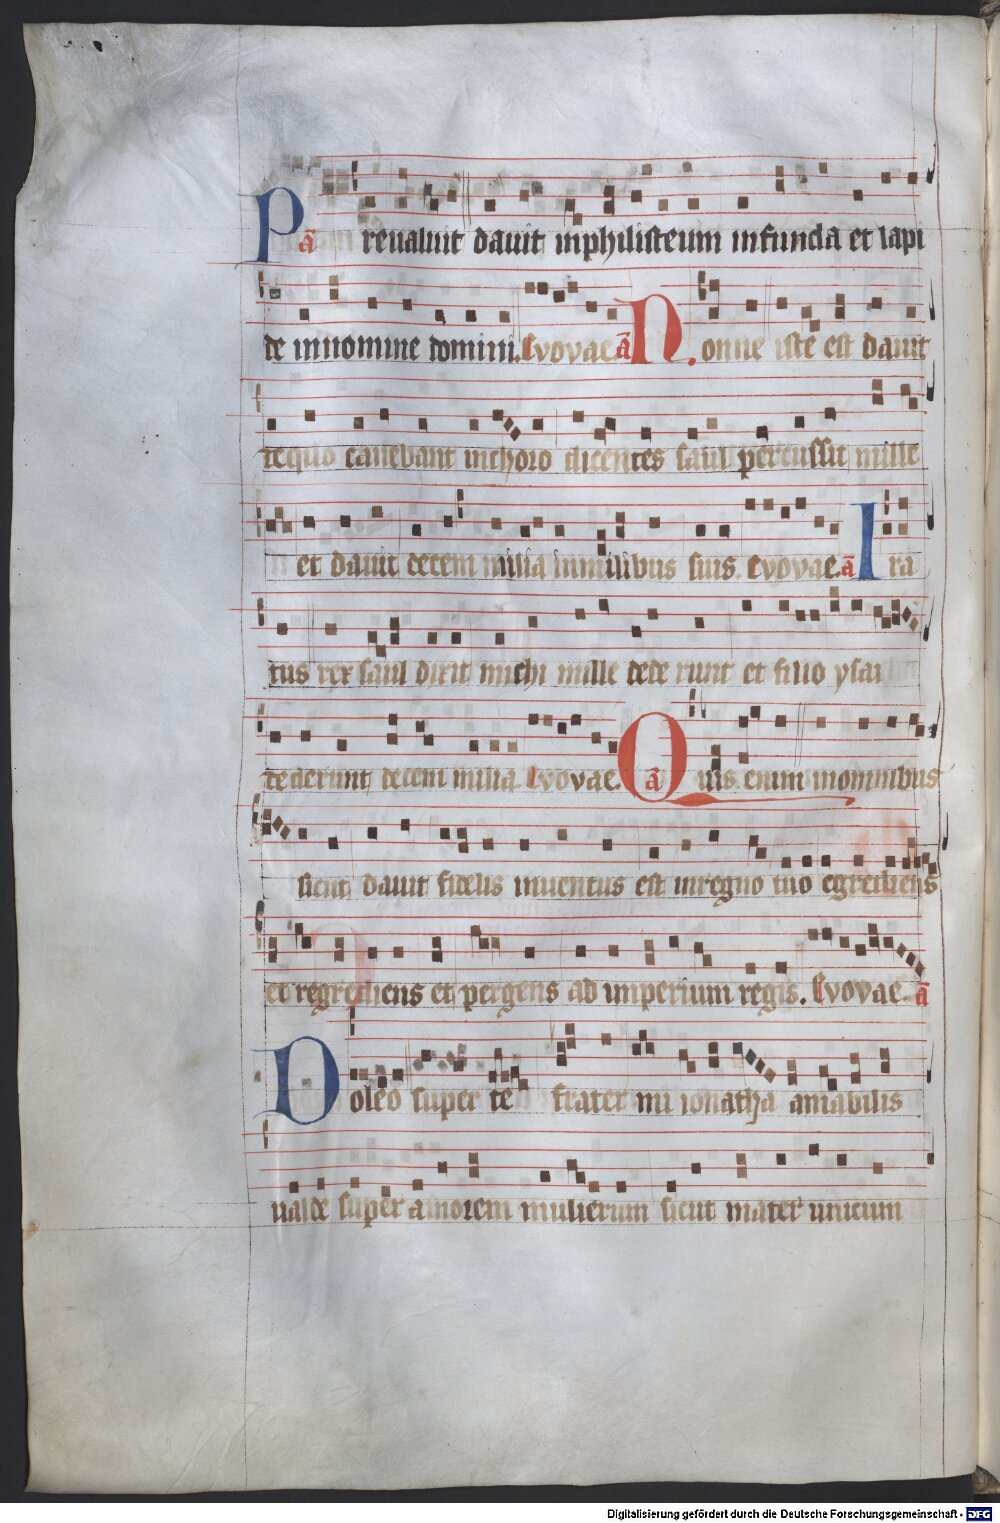 Pã reualuit dauit inphilisteum infunda et lapi
de innomine domini. Evovae ã Nonne iste est dauit
tequo canebant inchoro dicentes saul percussit mille
et dauit decem milia inmilibus suis. evovae. ã Ira
tus rex saul dixit michi mille dede runt et filio ysai
dederunt decem milia Evovae. ã Quis enim inomnibus
sicut dauit fidelis inuentus est inregno tuo egrediens
et regrediens et pergens ad imperium regis. Evovae. ã
Doleo super te frater mi ionatha amabilis
ualde super amorem mulierum sicut mater unicum
Digitalisierung gefördert durch die Deutsche Forschungsgemeinschaft - DFG